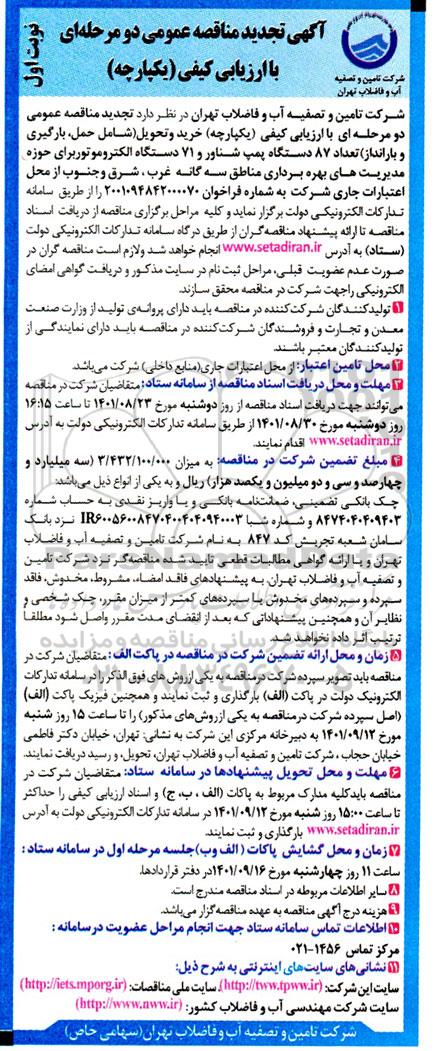 آگهی تجدید مناقصه عمومی دو مرحله‌ای
با ارزیابی کیفی (یکپارچه)
نوبت اول
شرکت تامین و تصفیه
آب و فاضلاب تهران
شرکت تامین و تصفیه آب و فاضلاب تهران در نظر دارد تجدید مناقصه عمومی
دو مرحله ای با ارزیابی کیفی (یکپارچه) خرید و تحویل(شامل حمل، بارگیری
و بارانداز) تعداد ۸۷ دستگاه پمپ شناور و ۷۱ دستگاه الکتروموتور برای حوزه
مدیریت های بهره برداری مناطق سه گانه غرب ، شرق و جنوب از محل
اعتبارات جاری شرکت به شماره فراخوان ۲۰۰۱۰۹۴۸۴۲۰۰۰۰۷۰ را از طریق سامانه
تدارکات الکترونیکی دولت برگزار نماید و کلیه مراحل برگزاری مناقصه از دریافت اسناد
مناقصه تا ارائه پیشنهاد مناقصه‌گران از طریق درگاه سامانه تدارکات الکترونیکی دولت
(ستاد) به آدرس www.setadiran.ir انجام خواهد شد ولازم است مناقصه گران در
صورت عدم عضویت قبلی، مراحل ثبت نام در سایت مذکور و دریافت گواهی امضای
الکترونیکی را جهت شرکت در مناقصه محقق سازند.
۱ تولیدکنندگان شرکت‌کننده در مناقصه باید دارای پروانه‌ی تولید از وزارت صنعت
معدن و تجارت و فروشندگان شرکت‌کننده در مناقصه باید دارای نمایندگی از
تولیدکنندگان معتبر باشند.
۲ محل تامین اعتبار: از محل اعتبارات جاری(منابع داخلی) شرکت می‌باشد.
۳ مهلت و محل دریافت اسناد مناقصه از سامانه ستاد: متقاضیان شرکت در مناقصه
می‌توانند جهت دریافت اسناد مناقصه از روز دوشنبه مورخ ۱۴۰۱/۰۸/۲۳ تا ساعت ۱۶:۱۵
روز دوشنبه مورخ ۱۴۰۱/۰۸/۳۰ از طریق سامانه تدارکات الکترونیکی دولت به آدرس
www.setadiran.ir اقدام نمایند.
۴ مبلغ تضمین شرکت در مناقصه: به میزان ۳/۴۳۲/۱۰۰/۰۰۰ (سه میلیارد و
چهارصد و سی و دو میلیون و یکصد هزار) ریال و به یکی از انواع ذیل می‌باشد:
چک بانکی تضمینی، ضمانت‌نامه بانکی و یا واریز نقدی به حساب شماره
۸۴۷۴۰۴۰۴۰۹۴۰۳ و شماره شبا IR۶۰۰۵۶۰۰۸۴۷۰۴۰۰۴۰۴۰۹۴۰۰۳ نزد بانک
سامان شعبه تجریش کد ۸۴۷ به نام شرکت تامین و تصفیه آب و فاضلاب
تهران و یا ارائه گواهی مطالبات قطعی تایید شده مناقصه‌گر نزد شرکت تامین
و تصفیه آب و فاضلاب تهران. به پیشنهادهای فاقد امضاء، مشروط، مخدوش، فاقد
سپرده و سپرده‌های مخدوش یا سپرده‌های کمتر از میزان مقرر، چک شخصی و
نظایر آن و همچنین پیشنهاداتی که بعد از انقضای مدت مقرر واصل شود مطلقاً
ترتیب اثر داده نخواهد شد.
۵ زمان و محل ارائه تضمین شرکت در مناقصه در پاکت الف: متقاضیان شرکت در
مناقصه باید تصویر سپرده شرکت در مناقصه به یکی از روش های فوق الذکر را در سامانه تدارکات
الکترونیک دولت در پاکت (الف) بارگذاری و ثبت نمایند و همچنین فیزیک پاکت (الف)
(اصل سپرده شرکت در مناقصه به یکی از روش‌های مذکور) را تا ساعت ۱۵ روز شنبه
مورخ ۱۴۰۱/۰۹/۱۲ به دبیرخانه مرکزی این شرکت به نشانی: تهران، خیابان دکتر فاطمی
خیابان حجاب ، شرکت تامین و تصفیه آب و فاضلاب تهران، تحویل، و رسید دریافت نمایند.
۶ مهلت و محل تحویل پیشنهادها در سامانه ستاد: متقاضیان شرکت در
مناقصه باید کلیه مدارک مربوط به پاکات (الف ، ب، ج) و اسناد ارزیابی کیفی را حداکثر
تا ساعت ۱۵:۰۰ روز شنبه مورخ ۱۴۰۱/۰۹/۱۲ در سامانه تدارکات الکترونیکی دولت به آدرس
www.setadiran.ir بارگذاری و ثبت نمایند.
۷ زمان و محل گشایش پاکات (الف وب)جلسه مرحله اول در سامانه ستاد :
ساعت ۱۱ روز چهارشنبه مورخ ۱۴۰۱/۰۹/۱۶در دفتر قراردادها.
۸ سایر اطلاعات مربوطه در اسناد مناقصه مندرج است.
۹ هزینه درج آگهی مناقصه به عهده مناقصه‌گزار می‌باشد.
۱۰ اطلاعات تماس سامانه ستاد جهت انجام مراحل عضویت در سامانه :
مرکز تماس ۱۴۵۶-۰۲۱
۱۱ نشانی‌های سایت‌های اینترنتی به شرح ذیل:
سایت این شرکت: (http://tww.tpww.ir)، سایت ملی مناقصات: (http://iets.mporg.ir)
سایت شرکت مهندسی آب و فاضلاب کشور: (http://www.nww.ir)
شرکت تامین و تصفیه آب و فاضلاب تهران(سهامی خاص)